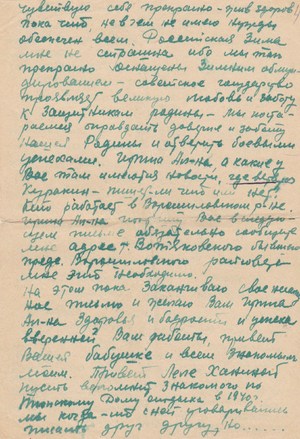 чувствую себя прекрасно - жив здоров!
пока что, ни в чём не имею нужды
обеспечен всем. Российская зима
мне не страшна ибо мы так
прекрасно оснащены зимним обмун-
дированием - советское государство
проявляет великую любовь и заботу
к защитникам родины - мы поста-
раемся оправдать доверие и заботу
нашей Родины и ответить боевыми
успехами. Ирина Ан-на а какие у
Вас там имеются новости, где
Куракин - пишут ли что или нет
кто работает в Ворошиловском р-не.
Ирина Ан-на прошу Вас в следую-
щем письме обязательно сообщите
мне адрес т. Вотяковского бывшего
пред. Ворошиловского
мне это необходимо.
На этом пока заканчиваю свое
письмо и желаю Вам Ирина
Ан-на здоровья и бодрости и успеха
вверенной Вам работы, привет
Вашей бабушке и всем знакомым
Привет Леле Ханиной
пусть вспомнит знакомого по
Дому отдыха в 1940г.
мы когда-то с ней уговаривались
писать друг другу, но.....